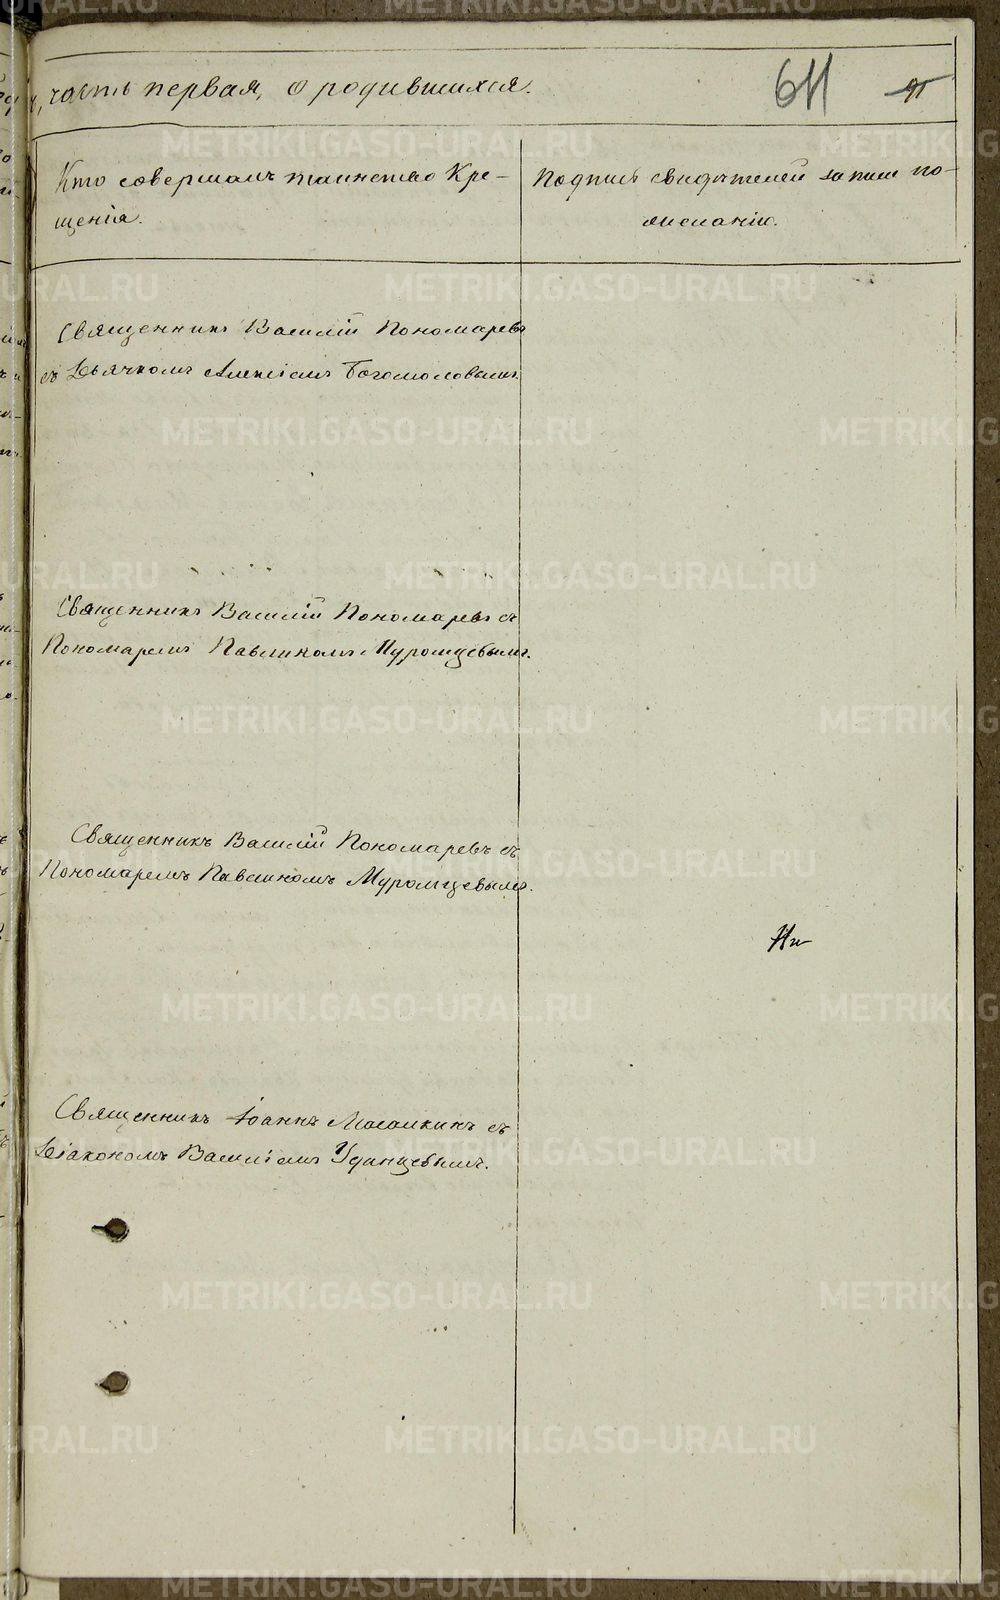 часть первая, о родившихся.
611
Кто совершалъ таинство Кре-
щенія.
Подпись свидѣтелей записи по
желанію.
Священникъ Василій Пономаревъ
съ Дьячкомъ Алексіемъ Богомоловымъ.
Священникъ Василій Пономаревъ съ
Пономаремъ Павлиномъ Муромцевымъ.
Священникъ Василій Пономаревъ съ
Пономаремъ Павлиномъ Муромцевымъ.
Священникъ Іоаннъ съ
Діакономъ Василіемъ Удинцевымъ.
METRIKI.GASO-URAL.RU